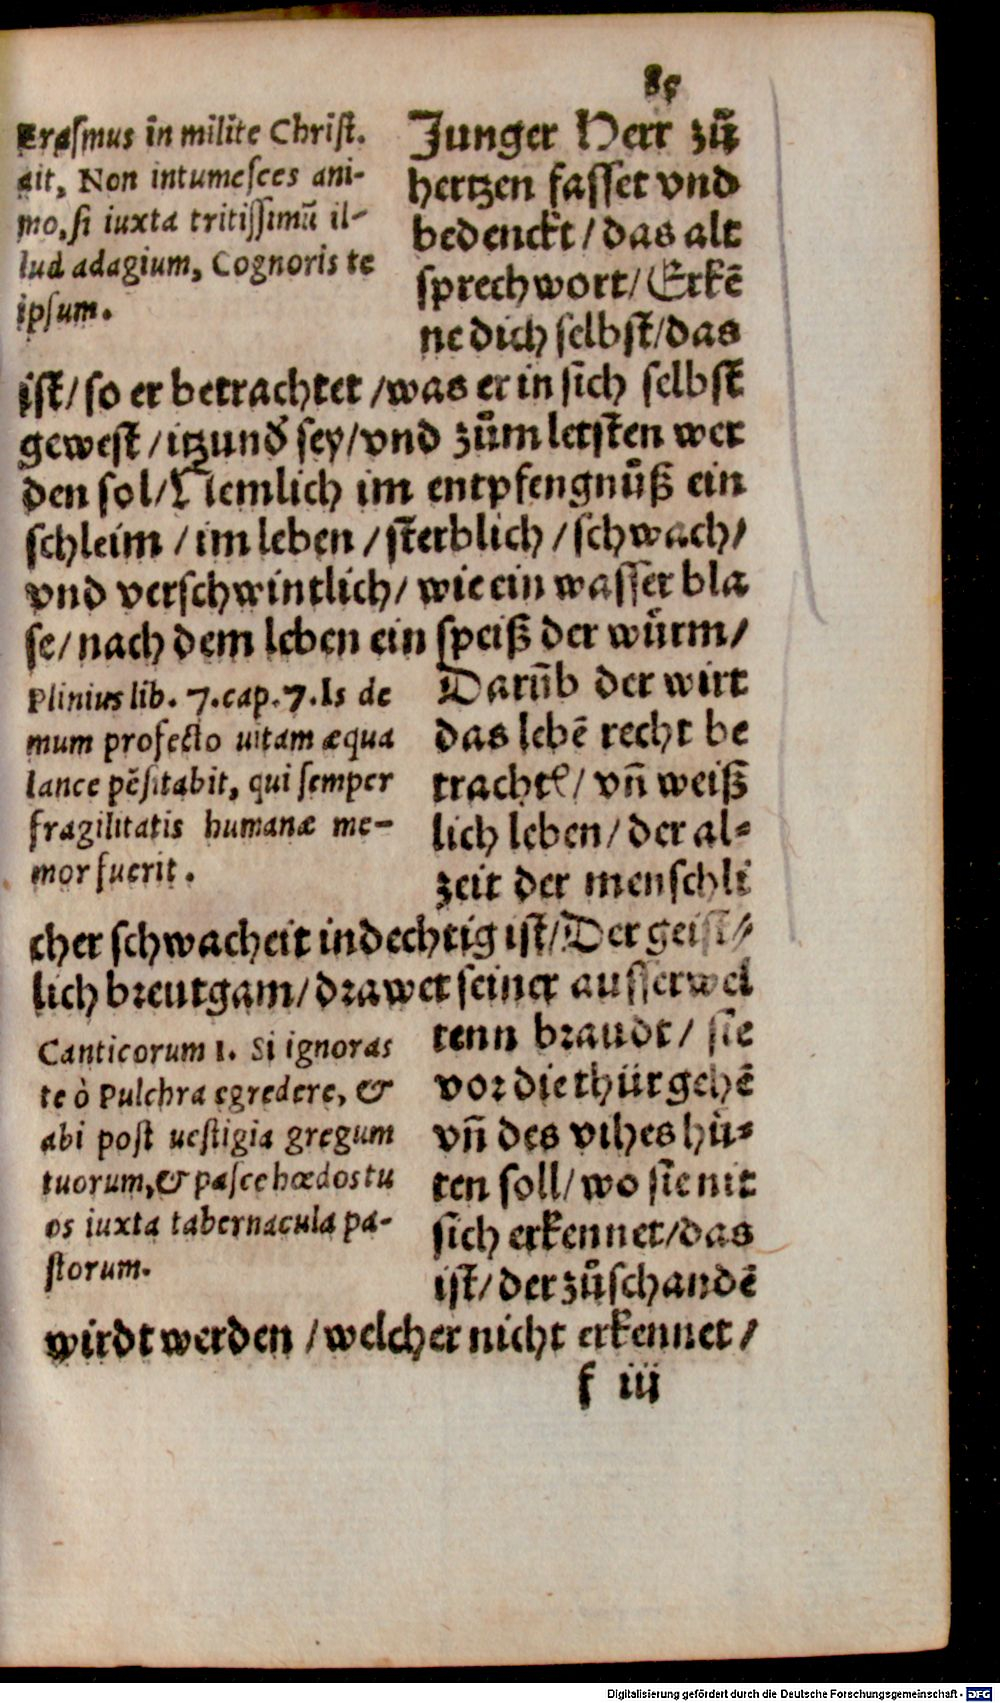 85
Erasmus in milite Christ.
ait, Non intumesces ani-
mo, si iuxta tritissimũ il-
lud adagium, Cognoris te
ipsum.
Junger Herr zů
hertzen fasset vnd
bedenckt / das alt
sprechwort / Erkẽ
ne dich selbst / das
ist / so er betrachtet / was er in sich selbst
gewest / itzund sey / vnd zům letsten wer
den sol / Nemlich im entpfengnůß ein
schleim / im leben / sterblich / schwach /
vnd verschwintlich / wie ein wasser bla
se / nach dem leben ein speiß der wůrm /
Plinius lib. 7. cap. 7. Is de
mum profecto uitam æqua
lance pẽsitabit, qui semper
fragilitatis humanæ me-
mor fuerit.
Darũb der wirt
das lebẽ recht be
trachtẽ / vñ weiß
lich leben / der al-
zeit der menschli
cher schwacheit indechtig ist / Der geist-
lich breutgam / drawet seiner ausserwel
Canticorum 1. Si ignoras
te ò Pulchra egredere, &
abi post uestigia gregum
tuorum, & pasce hœdos tu
os iuxta tabernacula pa-
storum.
tenn braudt / sie
vor die thür gehẽ
vñ des vihes hü-
ten soll / wo sie nit
sich erkennet / das
ist / der zůschandẽ
wirdt werden / welcher nicht erkennet /
f iii
Digitalisierung gefördert durch die Deutsche Forschungsgemeinschaft - DFG